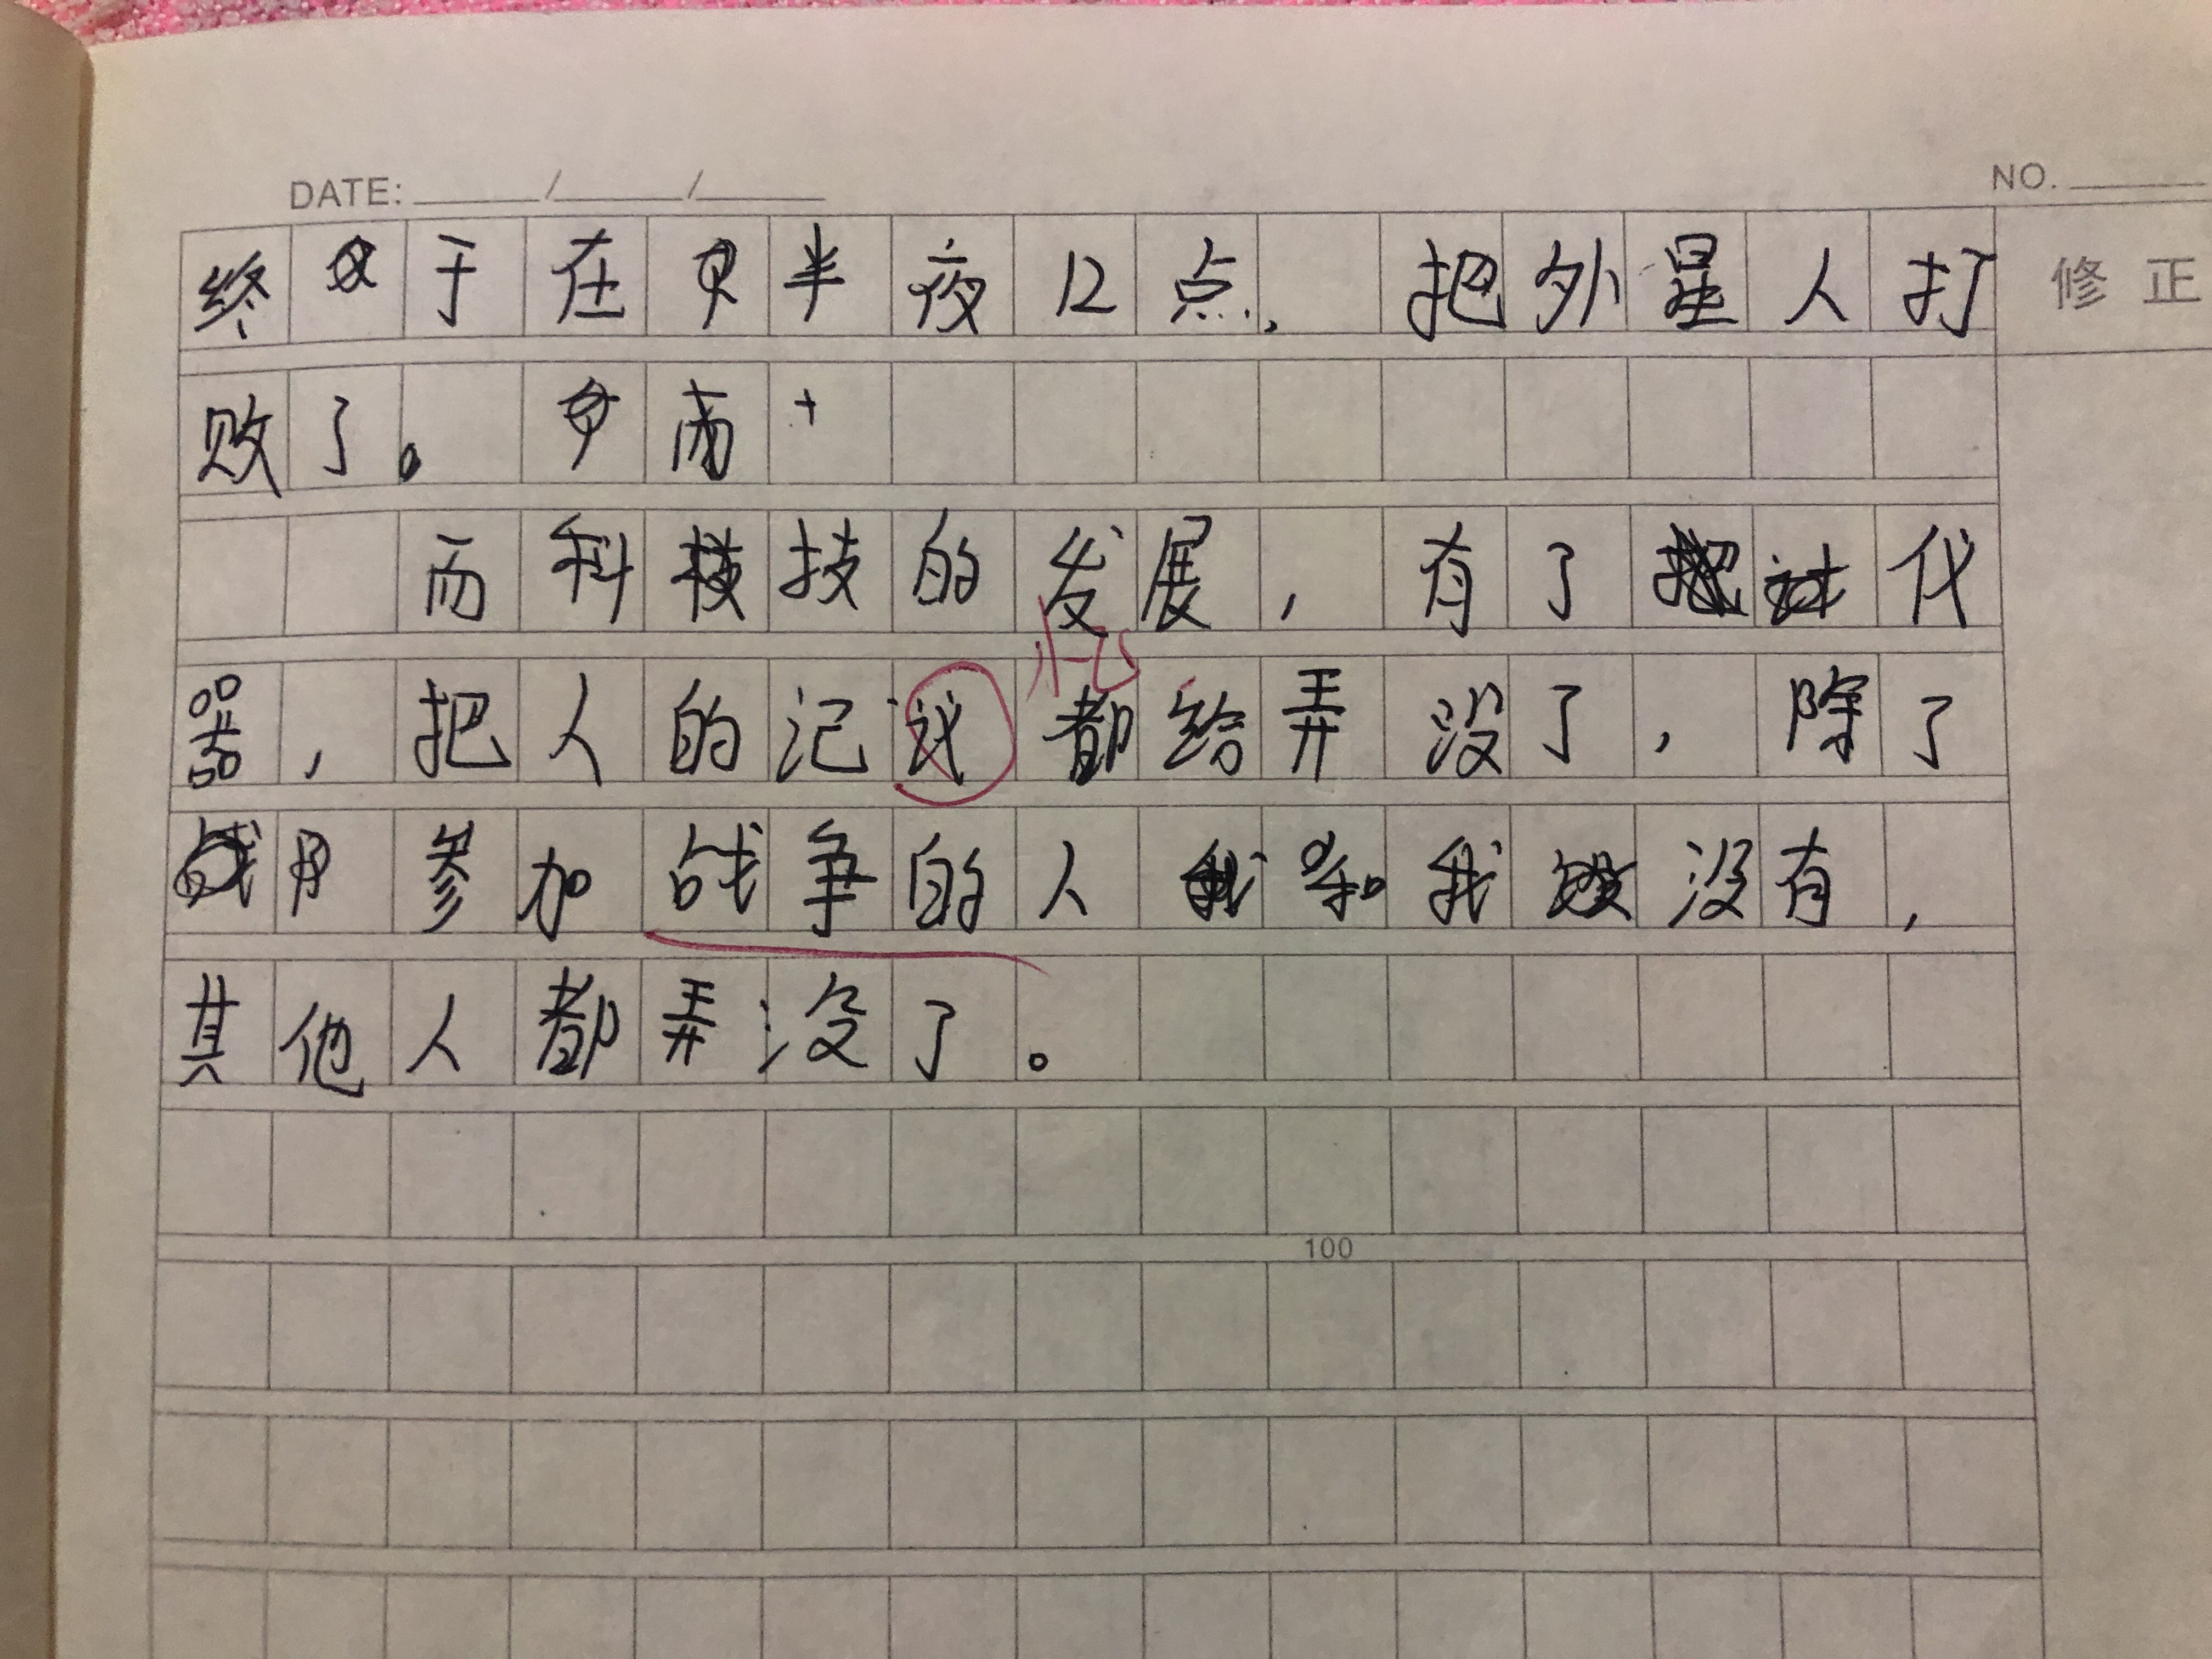 DATE: ____/____/____ NO. ____
终于在半夜12点, 把外星人打 修正
败了。
而科技的发展,有了代
忆
器,把人的记议都给弄没了,除了
参加战争的人和我没有,
其他人都弄没了。
100